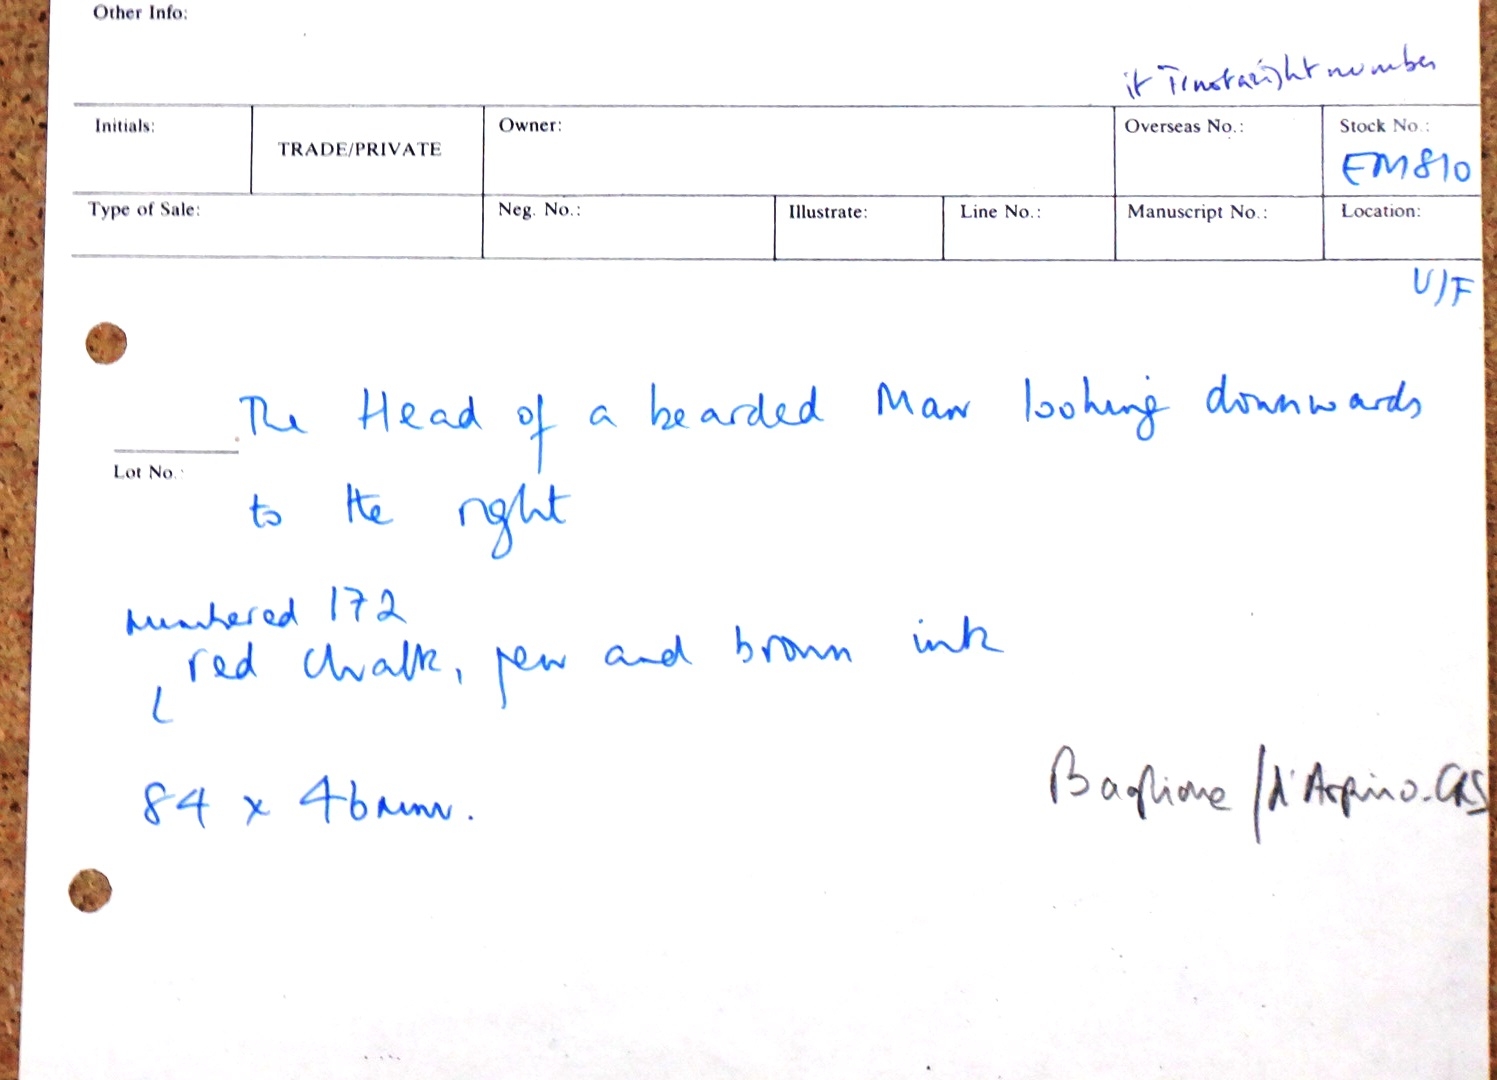 Other Info:
it number
Initials:
TRADE/PRIVATE
Owner:
Overseas No.:
Stock No.:
EM810
Type of Sale:
Neg. No.:
Illustrate:
Line No.:
Manuscript No.:
Location:
U/F
The Head of a bearded Man looking downwards
Lot No.:
to the right
numbered 172
red chalk, pen and brown ink
84 x 46mm.
Baglione/d'Arpino-CRS